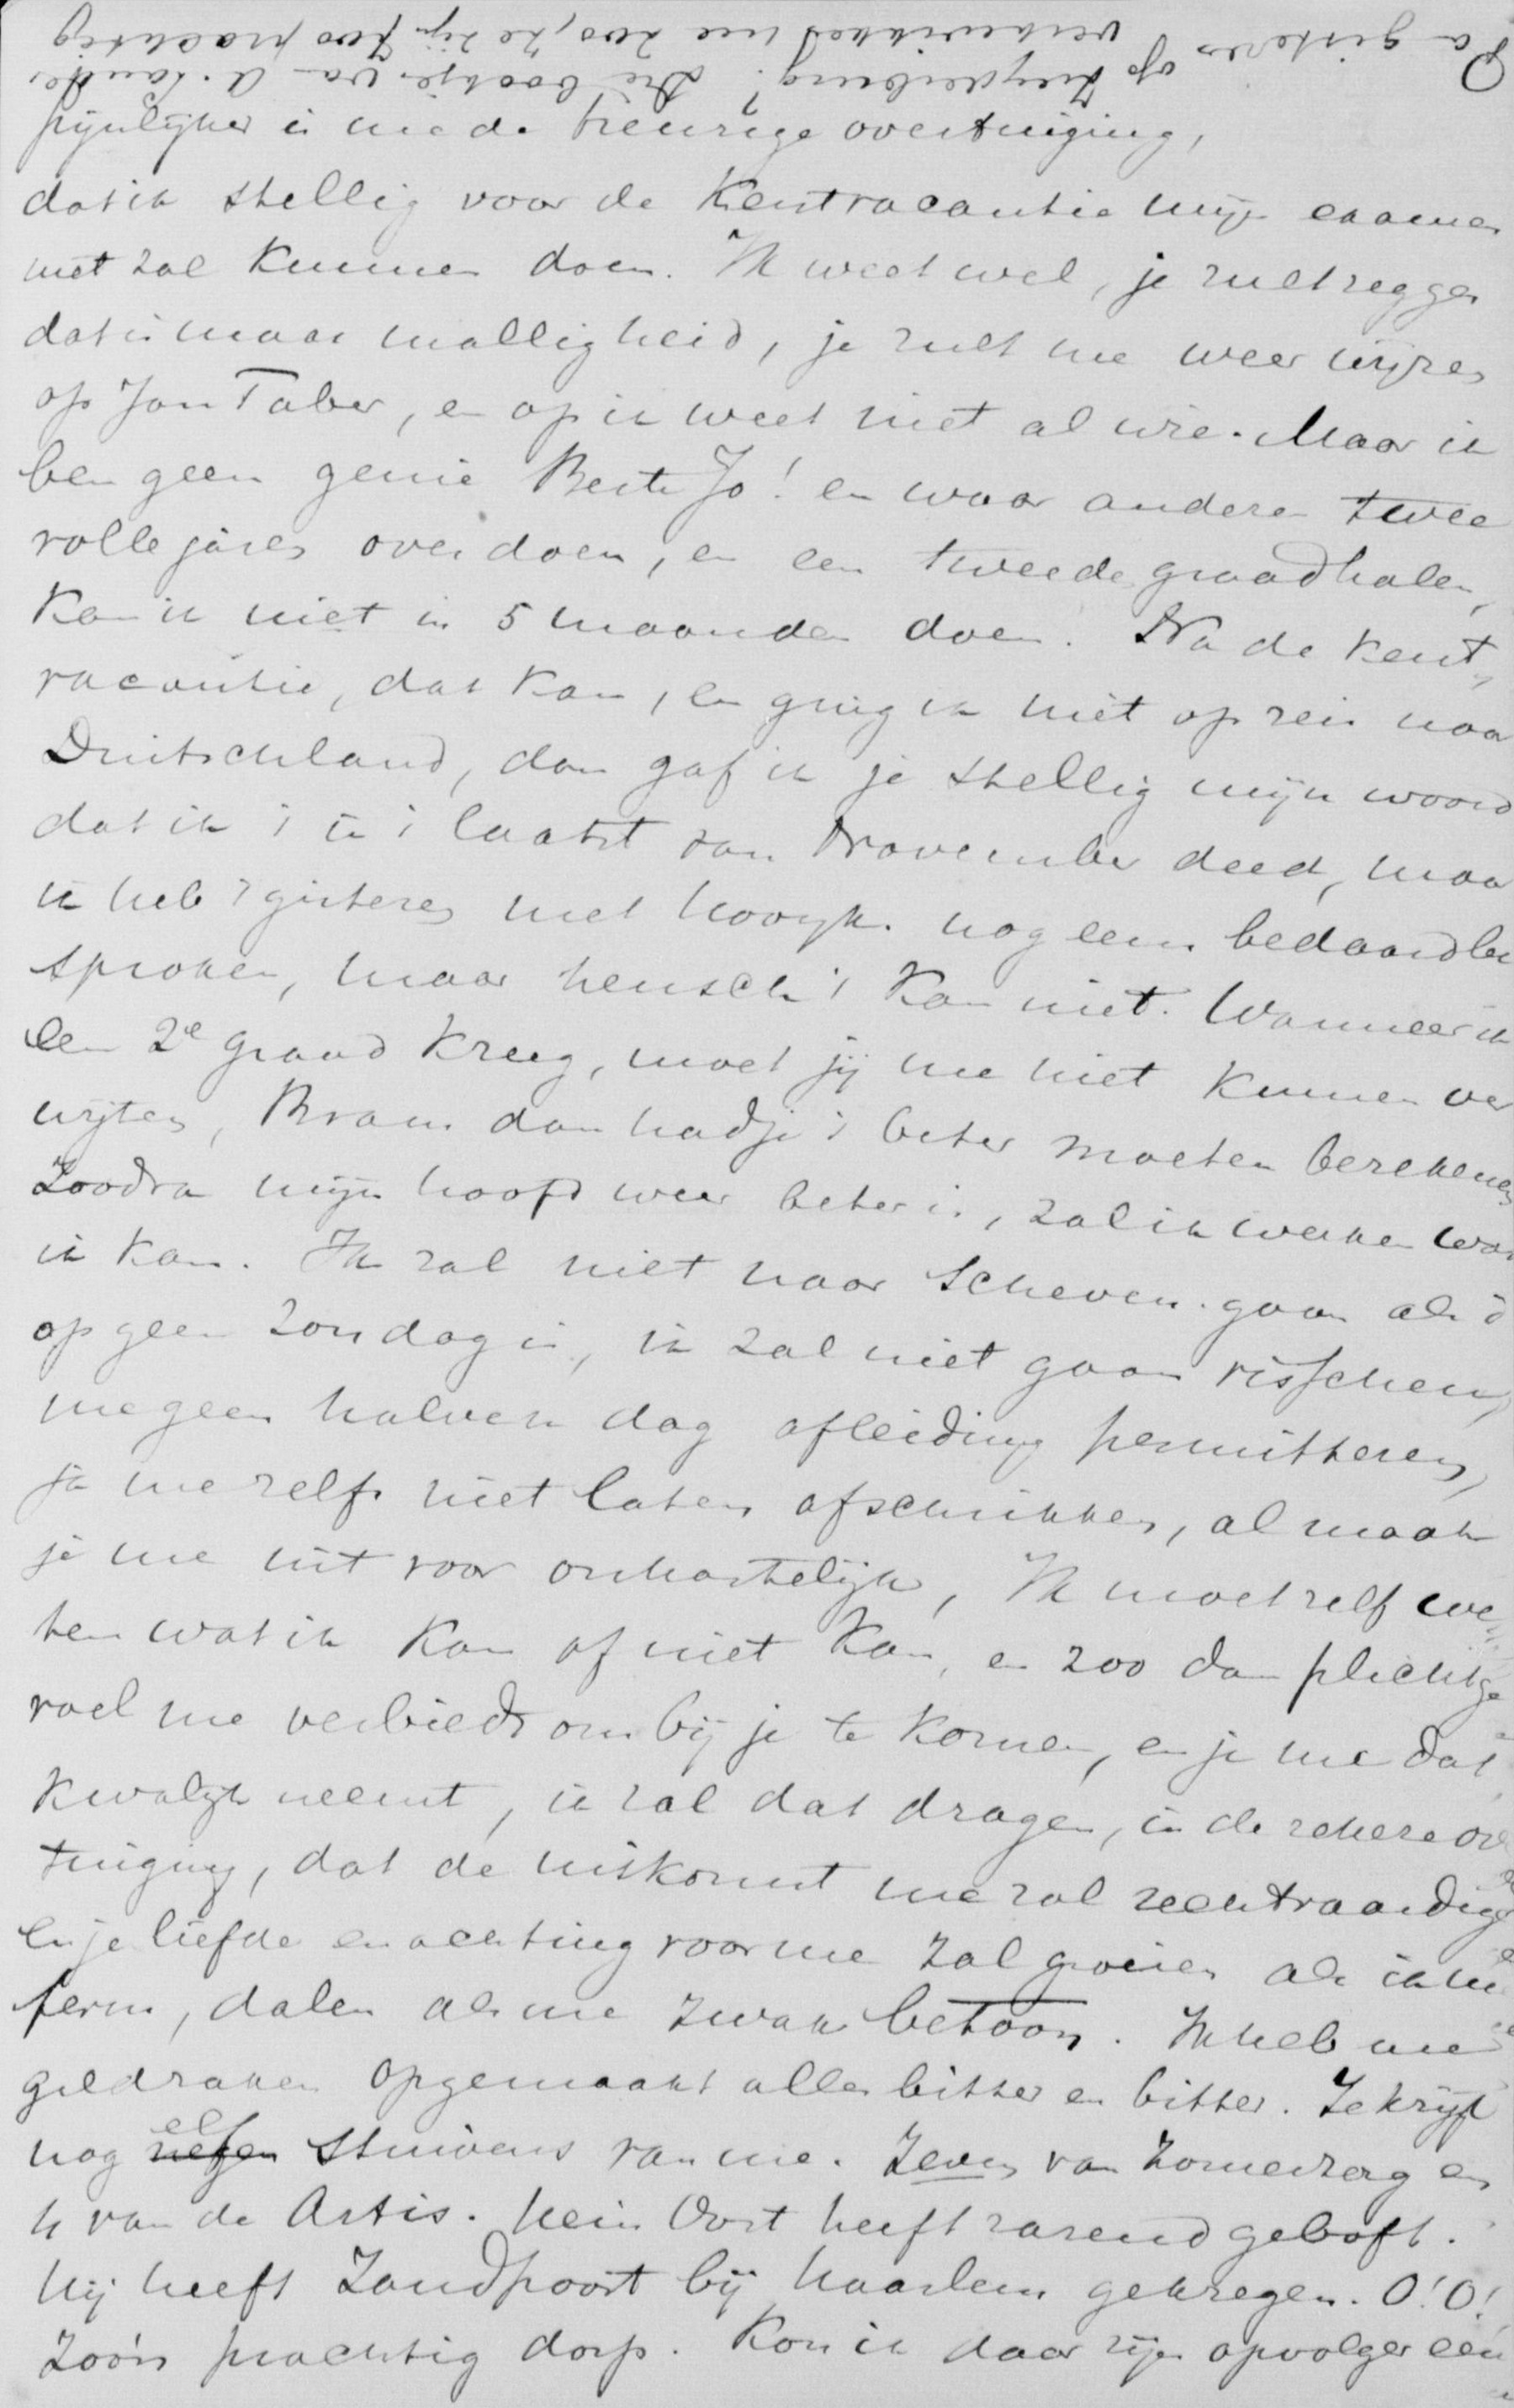 Pa gisteren op Zuyderburg? Die boekjes van A. Lander
verkwikken me zoo, ze zijn zoo prachtig
pijnlijker is me de treurige overtuiging,
dat ik stellig voor de Kerstvacantie mijn examen
niet zal kunnen doen. Ik weet wel, je zult zeggen
dat is maar malligheid, je zult me weer wijzen
op Jan Taber, en op ik weet niet al wie. Maar ik
ben geen genie Beste Jo! en waar anderen twee
volle jaren over doen, en een tweede graad halen,
Kan ik niet in 5 maanden doen. Na de Kerst,
vacantie, dat kan, en ging ik niet op reis naar
Duitschland, dan gaf ik je stellig mijn woord
dat ik 't in 't laatst van November deed, maar
ik heb 't gisteren met Hooyk. nog eens bedaard be
sproken, maar heusch 't Kan niet. Wanneer ik
een 2e graad kreeg, moet jij me niet kunnen ver
wijten, Bram dan hadje 't beter moeten berekenen
Zoodra mijn hoofd weer beter is, zal ik werken wat
ik kan. Ik zal niet naar Scheven. gaan als 't
op geen Zondag is, ik zal niet gaan visschen,
me geen halven dag afleiding permitteren,
ja me zelfs niet laten afschrikken, al maak
je me uit voor onhartelijk, Ik moet zelf we
ten wat ik kan of niet kan, en zoo dan plichtge
voel me verbiedt om bij je te komen, en je me dat
kwalijk neemt, ik zal dat dragen, in de zekere over
tuiging, dat de uitkomst me zal rechtvaardigen
en je liefde en achting voor me zal groeien als ik me
ferm, dalen als me zwak betoon. Ik heb me
geldzaken opgemaakt alles bitter en bitter. Je krijgt
nog elf stuivers van me. Zeven van Zomerzorg en
4 van de Artis. Hein Oort heeft razend geboft.
Hij heeft Zandpoort bij Haarlem gekregen. O! O!
Zoo'n prachtig dorp. Kon ik daar zijn opvolger een